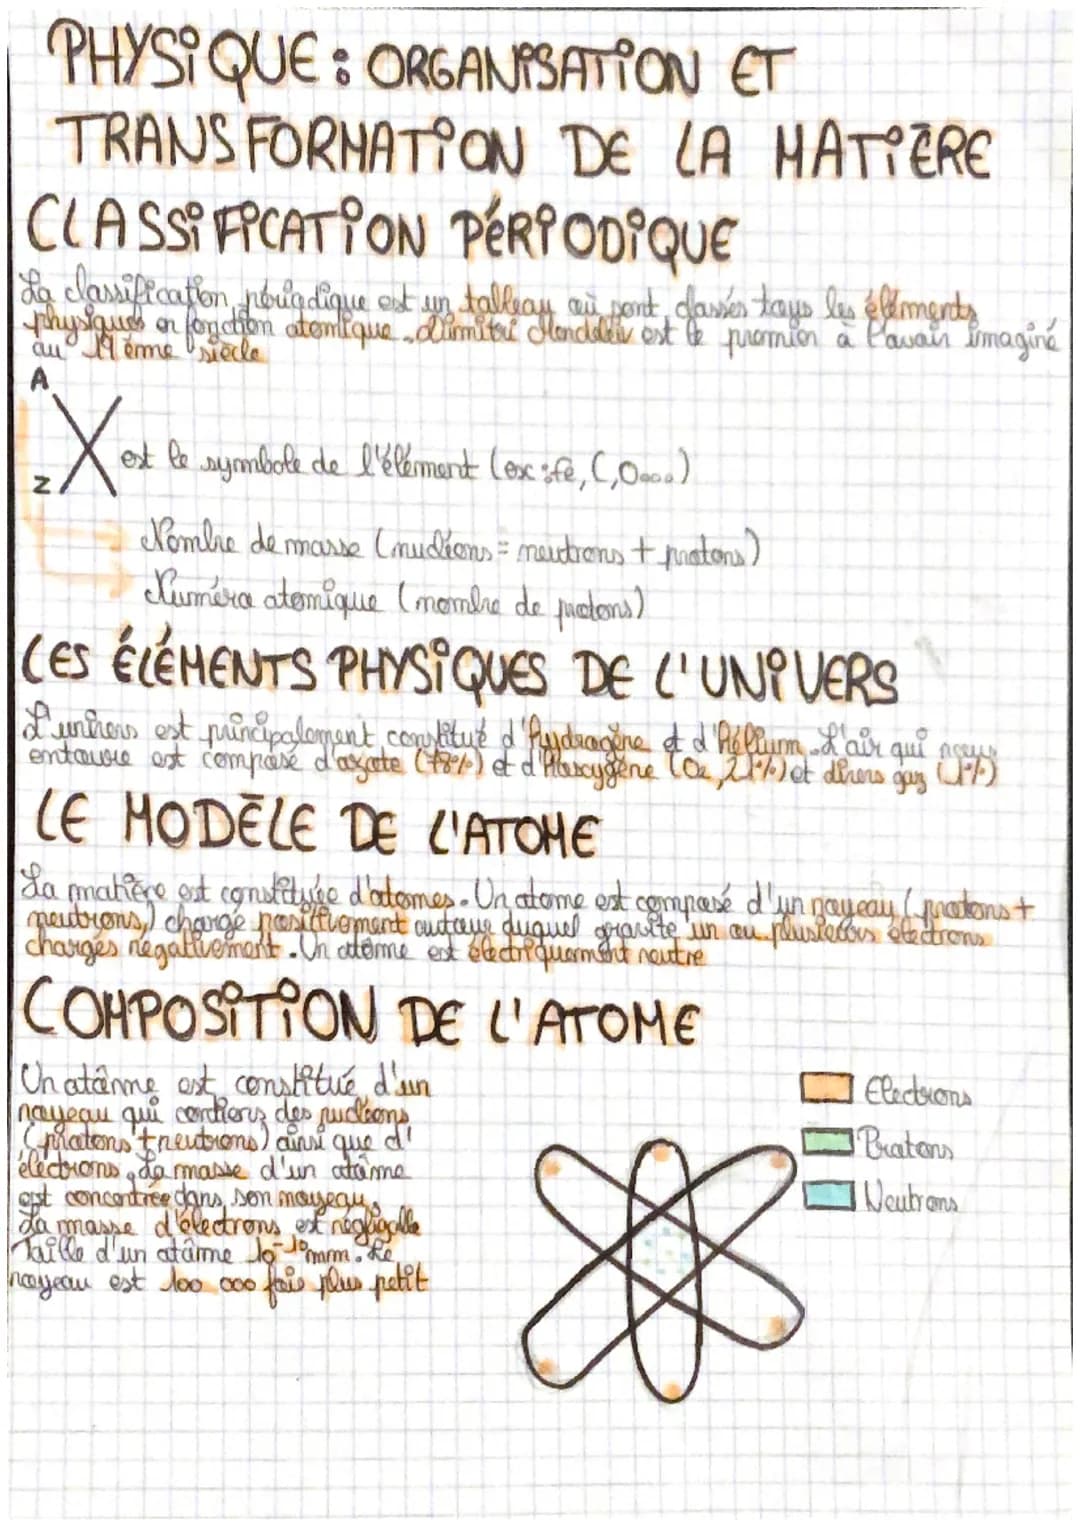 PHYSIQUE : ORGANISATION ET
TRANSFORMATION DE LA MATIÈRE
CLASSIFICATION PÉRIODIQUE
La classification périodique est un tableau où sont classés tous les éléments
physiques en fonction atomique. Dimitri Mendeleiv est le premier à l'avoir imaginé
au 19 ème siècle
A
X est le symbole de l'élément (ex : fe, C, O...)
Z
Nombre de masse (nucléons = neutrons + protons)
Numéro atomique (nombre de protons)
LES ÉLÉMENTS PHYSIQUES DE L'UNIVERS
L'univers est principalement constitué d'hydrogène et d'Hélium. L'air qui nous
entoure est composé d'azote (78%) et d'dioxygène (O2, 21%) et divers gaz (1%)
LE MODÈLE DE L'ATOME
La matière est constituée d'atomes. Un atome est composé d'un noyeau (protons +
neutrons,) chargé positivement autour duquel gravite un ou plusieurs électrons
chargés négativement. Un atôme est électriquement neutre
COMPOSITION DE L'ATOME
Un atôme est constitué d'un
noyeau qui contiens des nucléons
(protons + neutrons) ainsi que d'
électrons. La masse d'un atôme
est concentrée dans son noyeau.
La masse d'électrons est négligable
Taille d'un atôme 10⁻¹⁰mm. Le
noyeau est 100 000 fois plus petit
Electrons
Protons
Neutrons